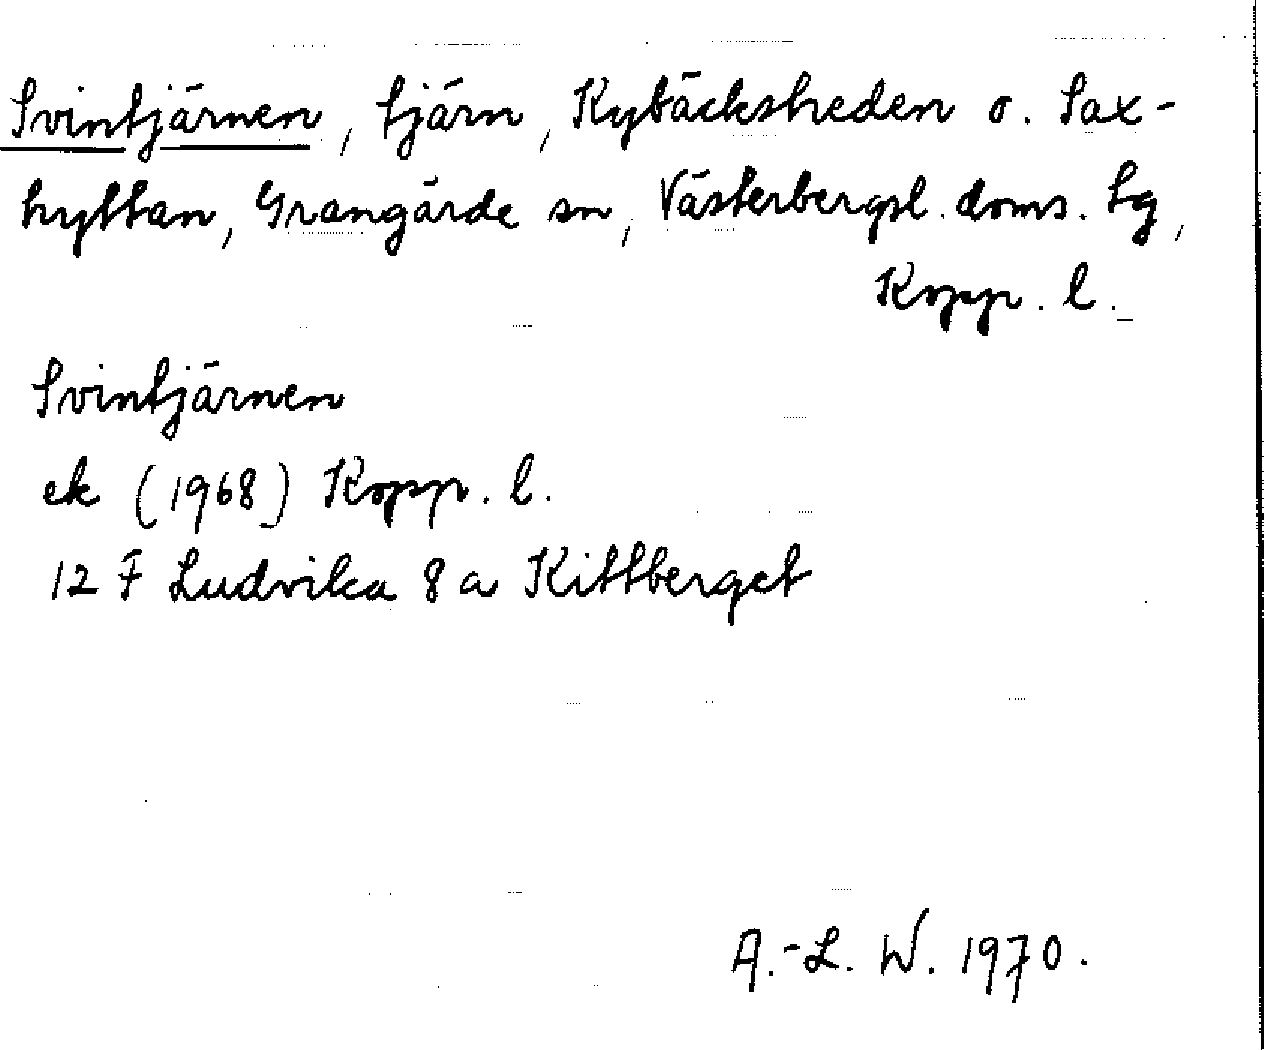 Svintjärnen, tjärn, Kybäcksheden o. Sax-
hyttan, Grangärde sn, Västerbergsl. doms. tg,
Kopp. l.
Svintjärnen
ek (1968) Kopp. l.
12 F Ludvika 8 a Kittberget
A.-L. W. 1970.